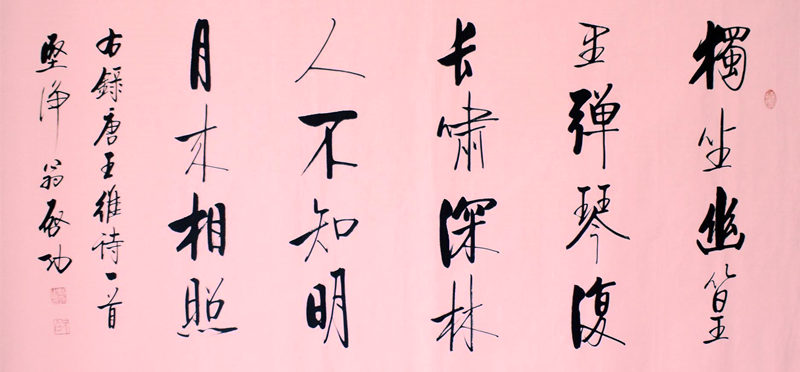 獨坐幽篁
里彈琴復
长嘯深林
人不知明
月来相照
右録唐王維诗一首
堅淨翁啓功